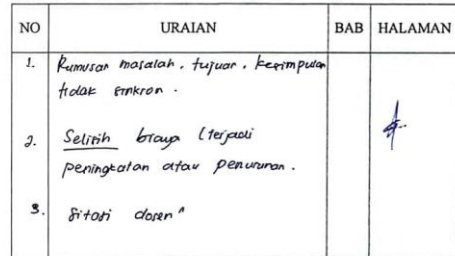 NO URAIAN BAB HALAMAN
1. Rumusan masalah, tujuan, kesimpulan
tidak sinkron.
2. Selisih biaya (terjadi
peningkatan atau penurunan.
3. Sitasi dosen"